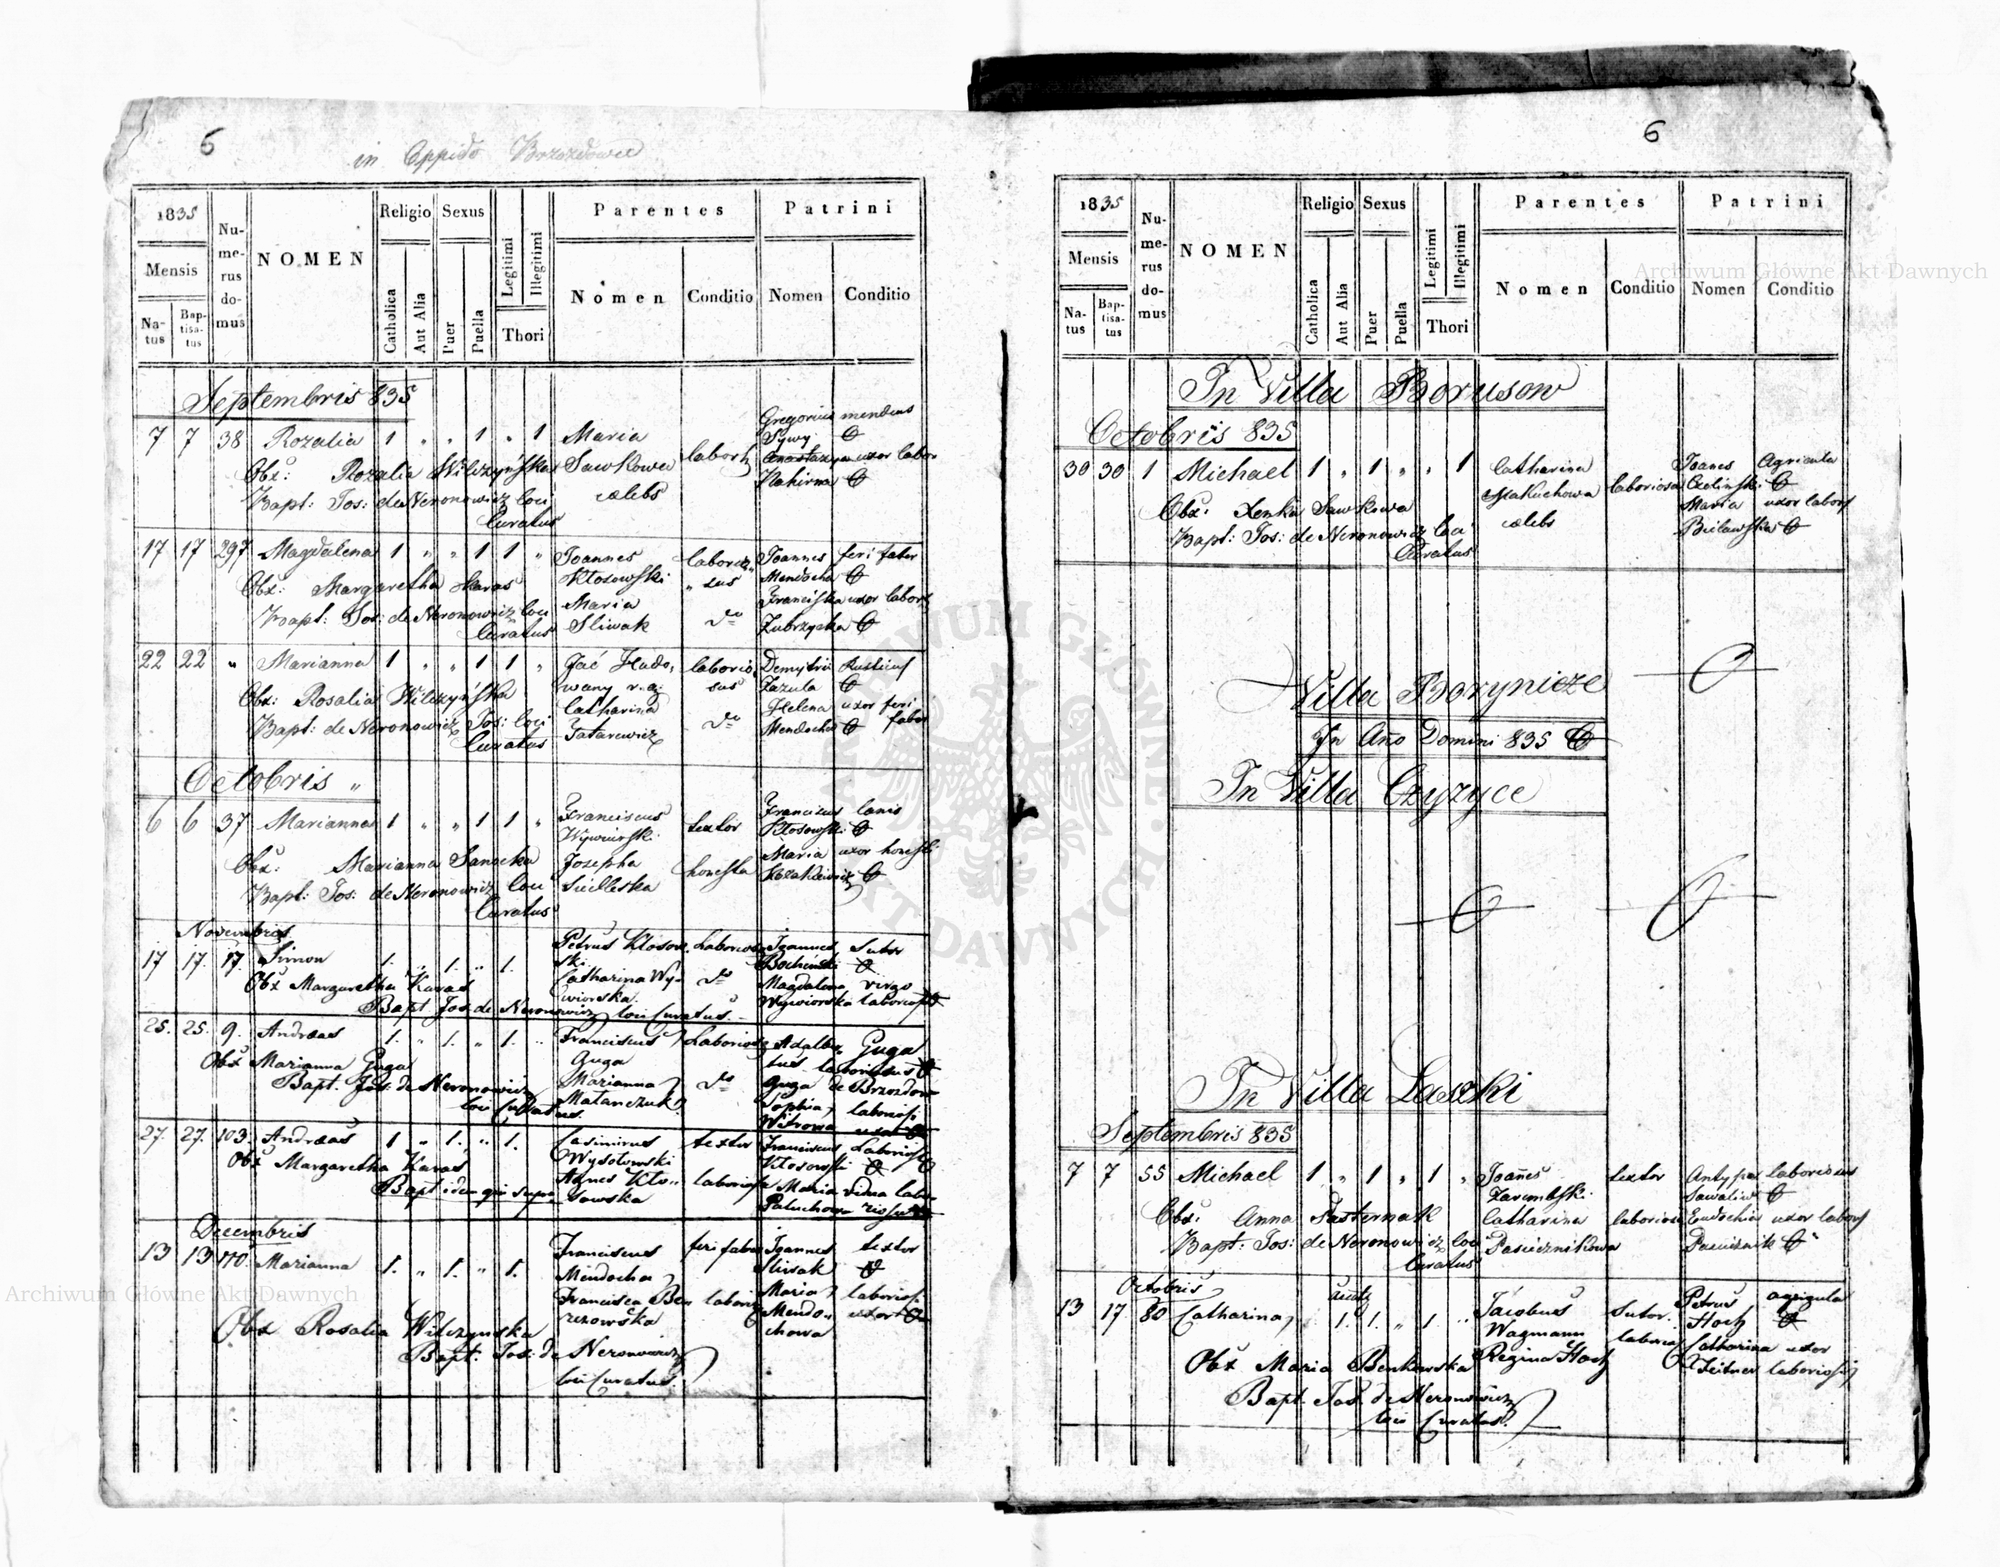 6
in Oppido Brozdowce
1835
Mensis
Natus
Baptisatus
Numerus domus
NOMEN
Religio
Catholica
Aut Alia
Sexus
Puer
Puella
Legitimi
Illegitimi
Thori
Parentes
Nomen
Conditio
Patrini
Nomen
Conditio
Septembris 835
7 7 38 Rozalia 1 „ „ 1 „ 1 Maria Gregorius mendicus
Obx: Rozalia Wilczyńska Sawkowa laboris
Bapt: Jos: de Neronowicz loci cælebs Nahirna
Curatus
17 17 297 Magdalena 1 „ „ 1 1 „ Joannes Joannes feri faber
Obx: Margaretha Karas Kłosowski Mendocha
Maria Franciska uxor labor
Bapt: Jos: de Neronowicz loci Sliwak do Zubrzycka
Curatus
22 22 „ Marianna 1 „ „ 1 1 „ laborio Demytri Rusticus
Obx: Rosalia Wilczyńska sus Zazula
Catharina Helena uxor feri
Bapt: de Neronowicz Jos: loci Tatarewicz do Mendocha fabri
Curatus
Octobris „
6 6 37 Marianna 1 „ „ 1 1 „ Franciscus textor Franciscus lanio
Wywiurski Kłosowski
Obx: Marianna Sanocka Josepha honesta Maria uxor honesti
Bapt: Jos: de Neronowicz loci Siedleska
Curatus
Novembris
17 17. 17. Simon 1. „ 1. „ 1. Petrus Klosow- Laboriosus Joannes Sutor
Obx Margaretha Karas ski Bochinski
Catharina Wy- do Magdalena virgo
wiorska. Wywiorska
Bapt Jos. de Neronowicz loci Curatus.
25. 25. 9. Andreas 1. „ 1. „ 1. Franciscus Laboriosus Adalber- Guga
Obx Marianna Guga Guga tus laboriosus
Bapt. Jos. de Neronowicz Marianna do Guga de Brzozdow
loci Curatus Matanczuk Sophia laboriosi
Witrowa uxor
27. 27. 103. Andreas 1 „ 1. „ 1. Casimirus textor Franciscus
Obx Margaretha Karas Wysotowski Klosowski
Bapt idem qui supra Agnes Kło- laboriosa Maria vidua labo-
sowska Paluchowa
Decembris
13 13 170. Marianna 1. „ 1. „ 1. Franciscus feri faber Joannes textor
Mendocha Sliwak
Francisca Ben- Maria laboriosi
rezowska Mendo- uxor
Obx Rosalia Wilczynska chowa
Bapt. Jos: de Neronowicz
loci Curatus.
6
1835
Mensis
Natus
Baptisatus
Numerus domus
NOMEN
Religio
Catholica
Aut Alia
Sexus
Puer
Puella
Legitimi
Illegitimi
Thori
Parentes
Nomen
Conditio
Patrini
Nomen
Conditio
In Villa Borusow
Octobris 835
30 30 1 Michael 1 „ 1 „ „ 1 Catharina Joanes Agricola
laboriosa
Obx: Xenka Sawkowa cælebs Maria uxor labors
Bapt: Jos: de Neronowicz loci Bielawska
Curatus
Villa Borynicze
In Año Domini 835
In Villa Czyzyce
In Villa Laszki
Septembris 835
7 7 55 Michael 1 „ 1 „ 1 „ Joañes textor laboriosus
Zarembski
Obx: Anna Pasternak Catharina laboriosa Eudochia uxor labors
Bapt: Jos: de Neronowicz loci Dasiecznikowa Dasiecznik
Curatus
Octobris
13 17 80 Catharina 1. 1. „ 1 „ Jacobus Sutor. Petrus agricola
Wagmann Hoch
Obx Maria Benkowska Regina Hoch Catharina uxor
Bapt. Jos. de Neronowicz
loci Curatus.
Archiwum Główne Akt Dawnych
Archiwum Główne Akt Dawnych
ARCHIWUM GŁÓWNE AKT DAWNYCH